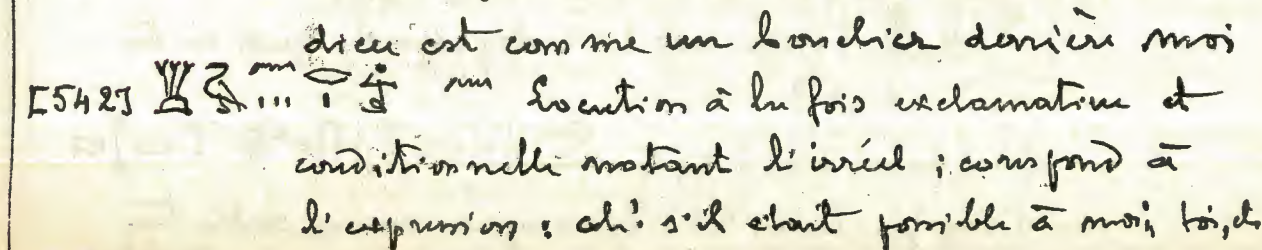 dieu est comme un bouclier derrière moi
[542] Locution à la fois exclamative et
conditionnelle notant l'irréel ; correspond à
l'expression : ah! s'il était possible à moi, toi, etc